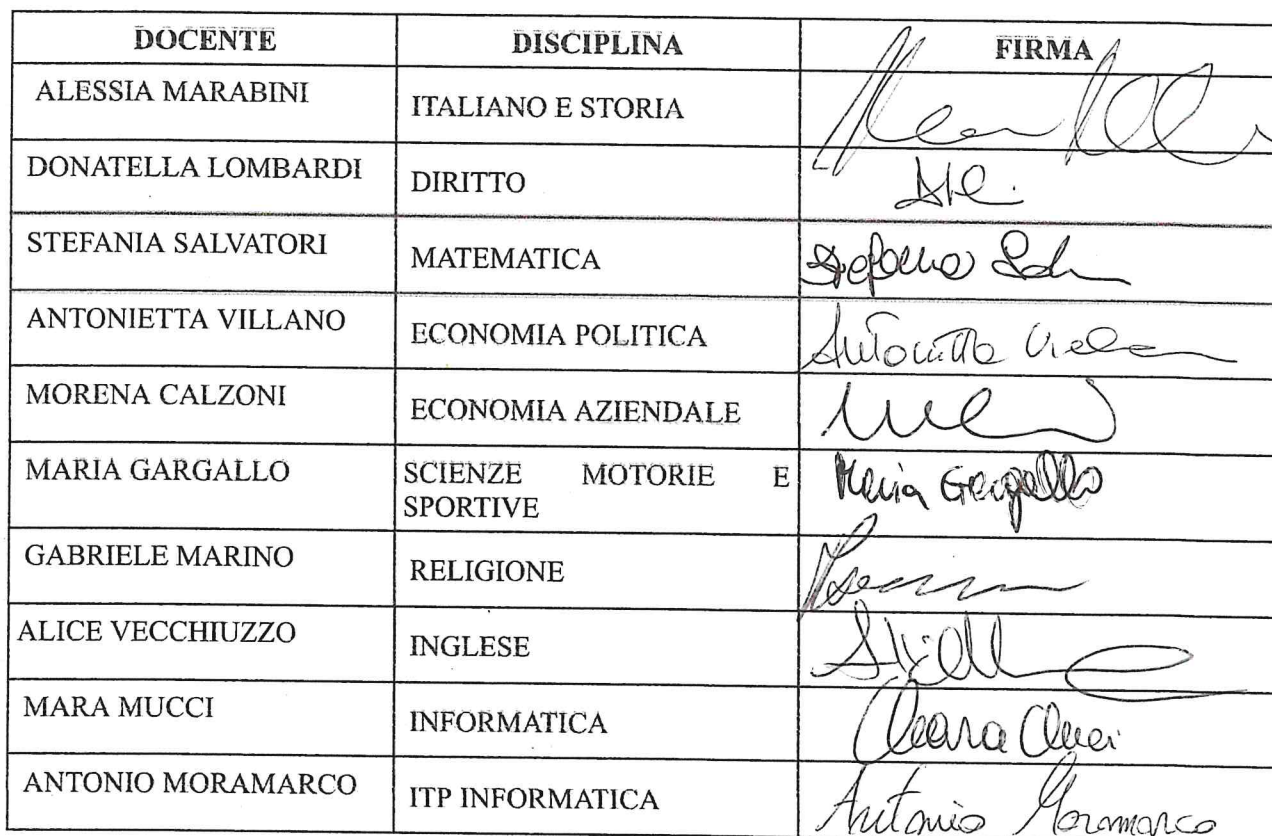 DOCENTE DISCIPLINA FIRMA
ALESSIA MARABINI ITALIANO E STORIA
DONATELLA LOMBARDI DIRITTO
STEFANIA SALVATORI MATEMATICA
ANTONIETTA VILLANO ECONOMIA POLITICA Antonietta
MORENA CALZONI ECONOMIA AZIENDALE
MARIA GARGALLO SCIENZE MOTORIE E Maria Gargallo
SPORTIVE
GABRIELE MARINO RELIGIONE
ALICE VECCHIUZZO INGLESE
MARA MUCCI INFORMATICA
ANTONIO MORAMARCO ITP INFORMATICA Antonio Moramarco